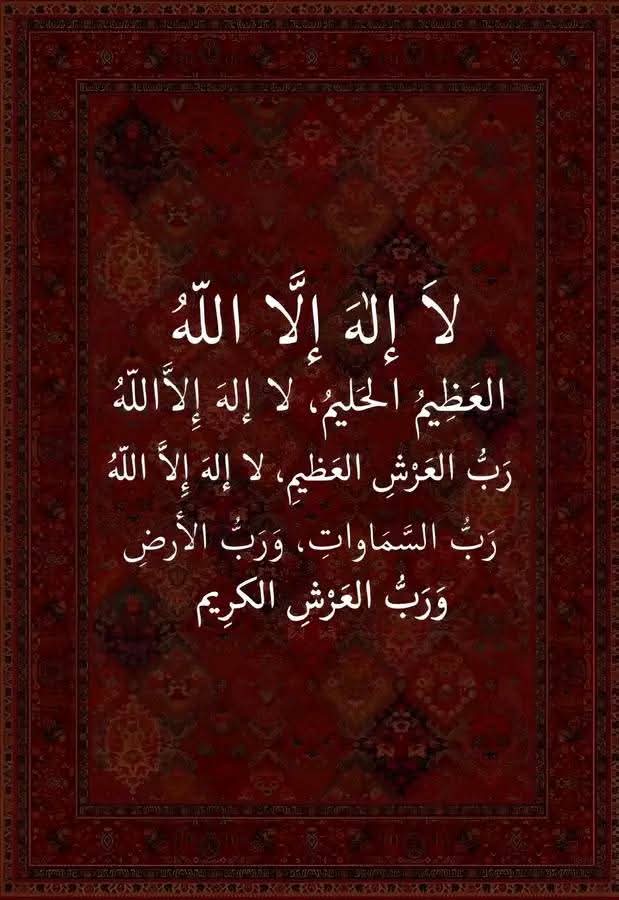 لاَ إِلٰهَ إِلَّا اللّهُ
العَظِيمُ الحَليمُ، لا إلهَ إِلاَّاللّهُ
رَبُّ العَرْشِ العَظيمِ، لا إلهَ إِلاَّ اللّهُ
رَبُّ السَّمَاواتِ، وَرَبُّ الأَرضِ
وَرَبُّ العَرْشِ الكرِيم